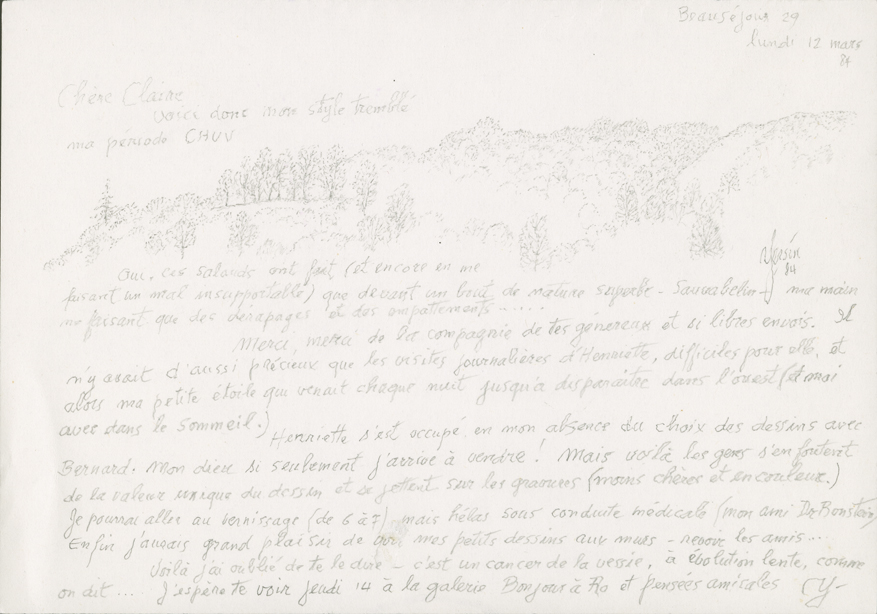 Beauséjour 29
lundi 12 mars
84
Chère Claire
voici donc mon style tremblé
ma période CHUV
Yersin
84
Oui, ces salauds ont fait (et encore en me
faisant un mal insupportable) que devant un bout de nature superbe - Sauvabelin - ma main
ne faisant que des dérapages et des empattements .....
Merci, merci de la compagnie de tes généreux et si libres envois. Il
n'y avait d'aussi précieux que les visites journalières d'Henriette, difficiles pour elle, et
alors ma petite étoile qui venait chaque nuit jusqu'à disparaître dans l'ouest (et moi
avec dans le sommeil.)
Henriette s'est occupé en mon absence du choix des dessins avec
Bernard. Mon dieu si seulement j'arrive à vendre ! Mais voilà les gens s'en foutent
de la valeur unique du dessin et se jettent sur les gravures (moins chères et en couleur.)
Je pourrai aller au vernissage (de 6 à 7) mais hélas sous conduite médicale (mon ami Dr Bonstein)
Enfin j'aurais grand plaisir de voir mes petits dessins aux murs - revoir les amis ...
Voilà j'ai oublié de te le dire - c'est un cancer de la vessie, à évolution lente, comme
on dit ... J'espère te voir jeudi 14 à la galerie Bonjour à Ro et pensées amicales CY-